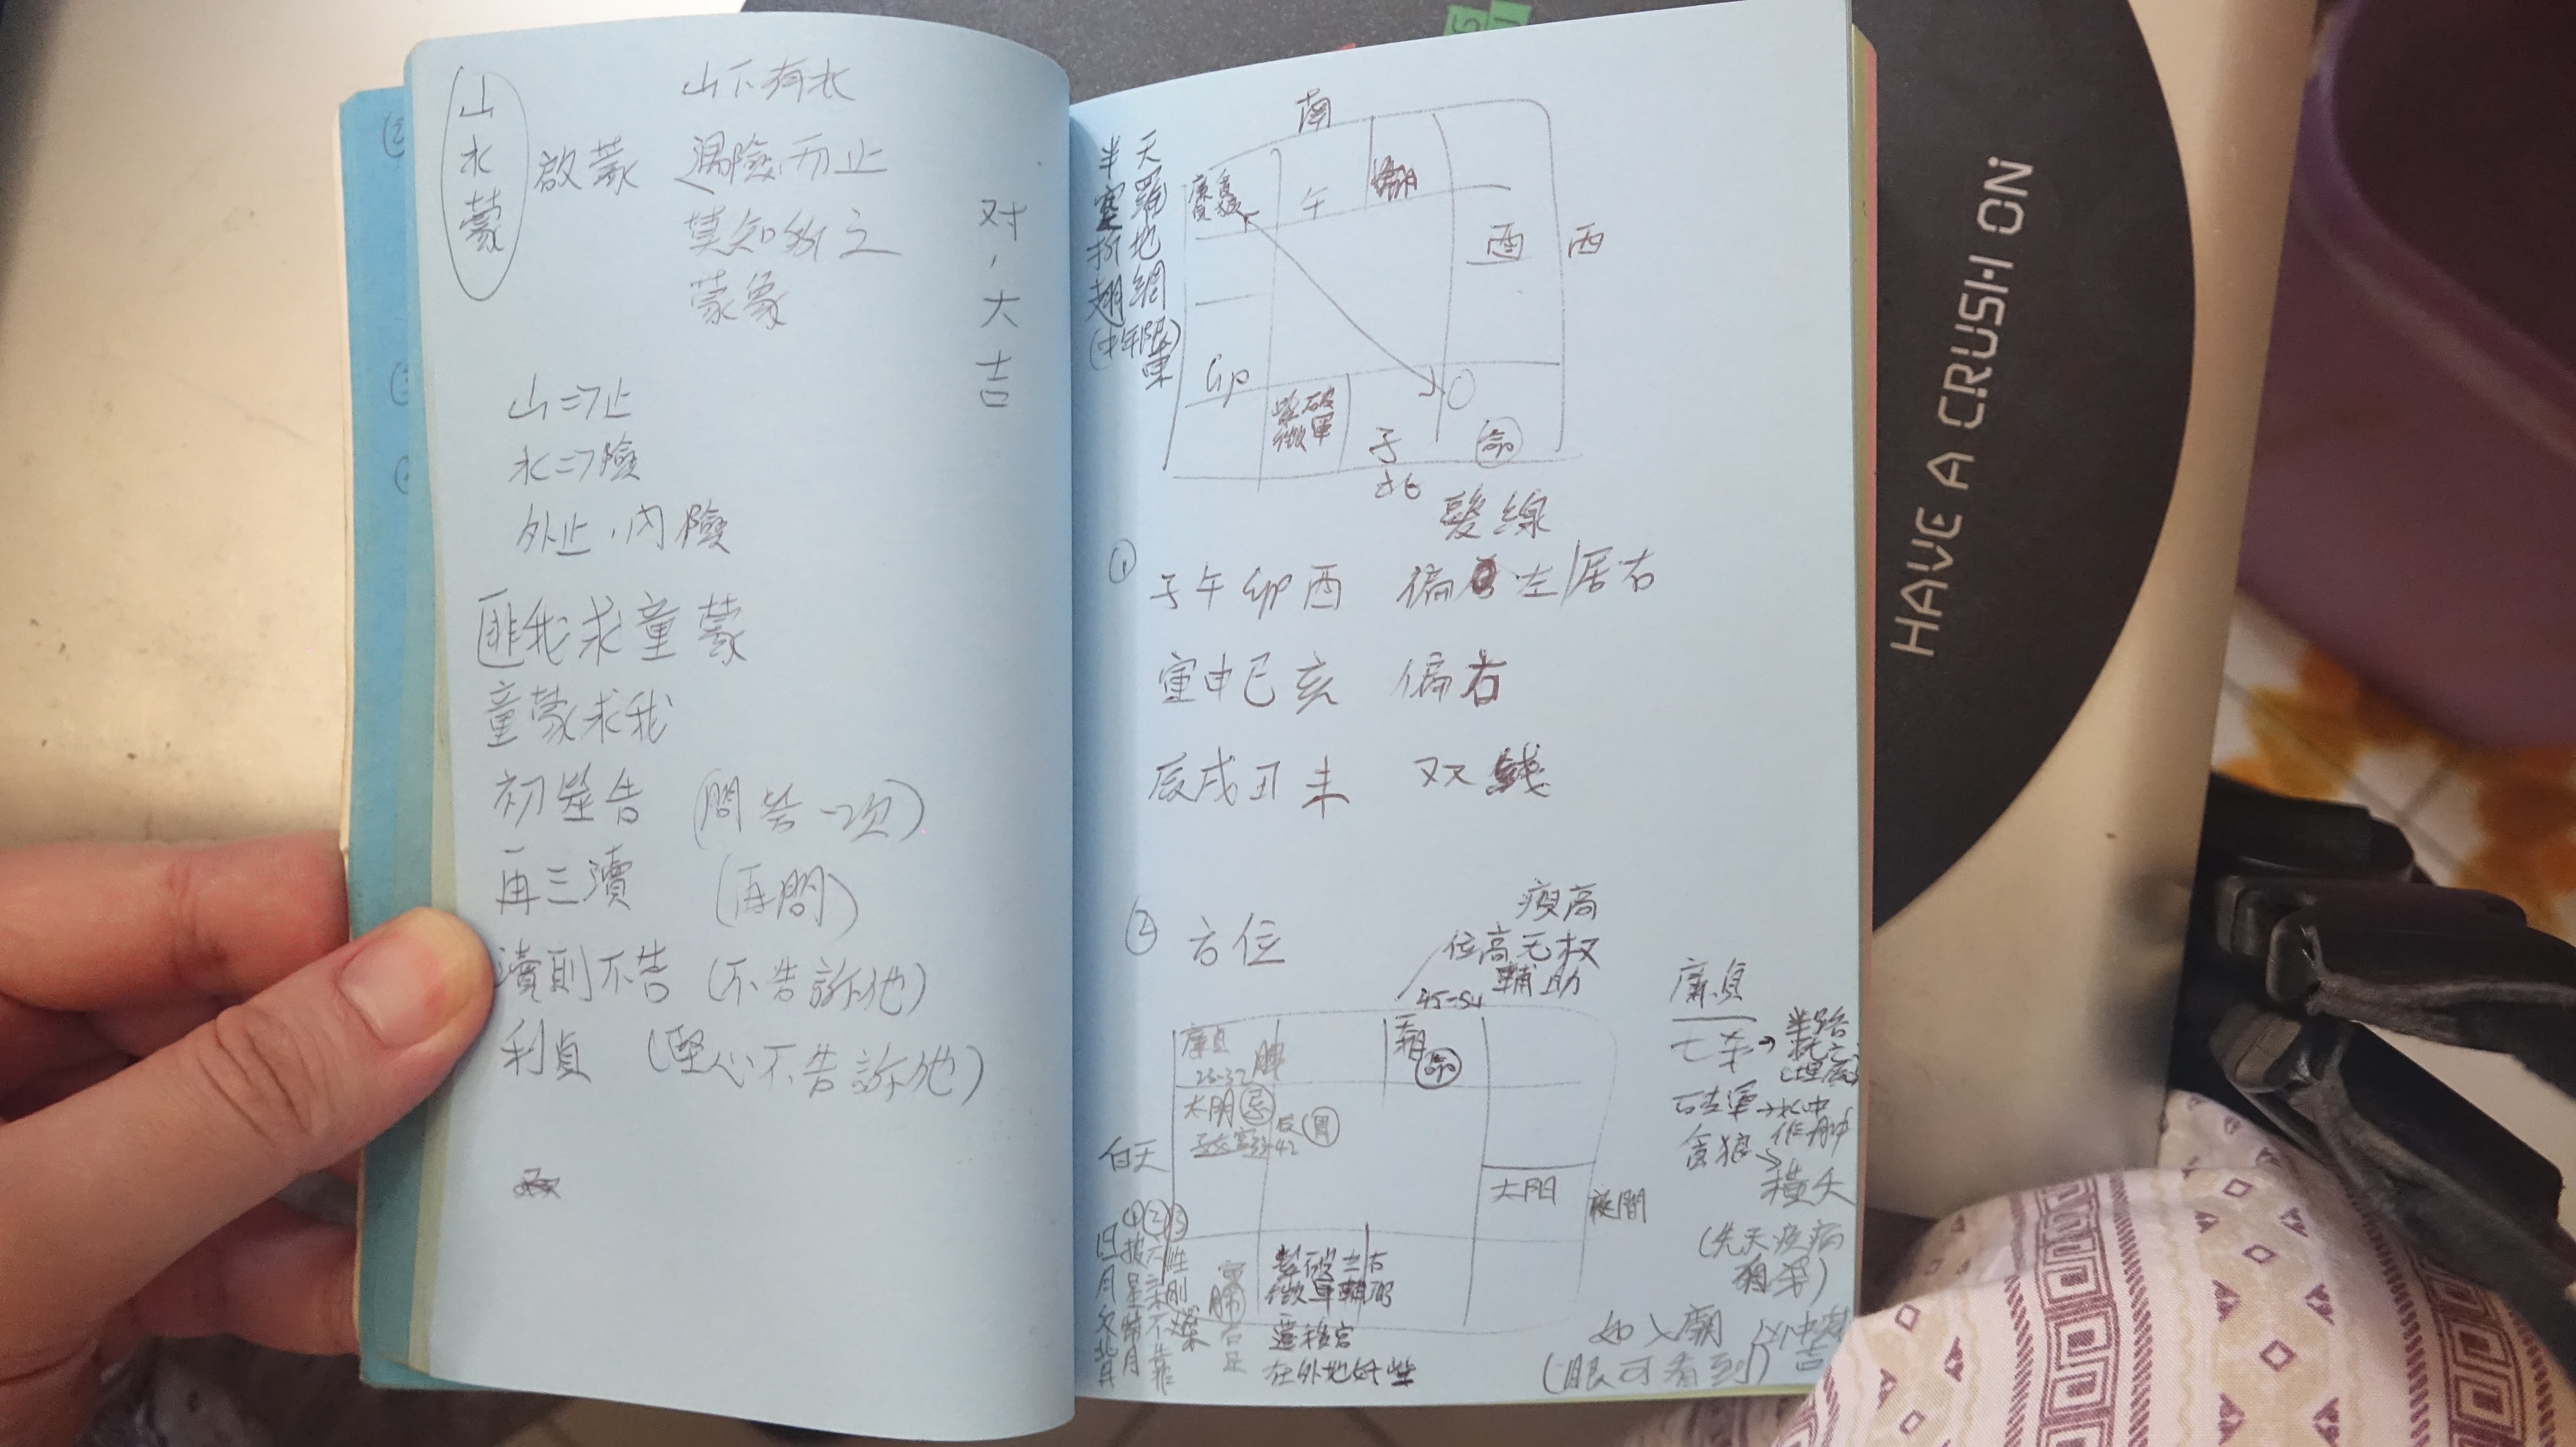 山水蒙
啟蒙
山下有水
遇險而止
莫知所之
蒙象
对,大吉
山⇒止
水⇒險
外止,內險
匪我求童蒙
童蒙求我
初筮告 (問答一次)
再三瀆 (再問)
瀆則不告 (不告訴他)
利貞 (堅心不告訴他)
南
天羅地網
半空折翅
(中年限)
東
廉貞 貪狼
午
酉
西
卯
紫微 破軍
子
命
北
髮線
① 子午卯酉 偏左/居右
寅申巳亥 偏右
辰戌丑未 双線
② 方位
瘦高
位高无权
輔助
45-54
廉貞
23-32
脾
命
太陰 忌
胃
白天
太阳
夜間
紫微 破軍 左輔 右弼
遷移宮
在外地好些
①②③
六亲不靠
性刚燥
廉貞
七杀→半路
破軍→水中作塚
貪狼→
(先天疾病
如入廟
(眼可看到)
HAVE A CRUSH ON